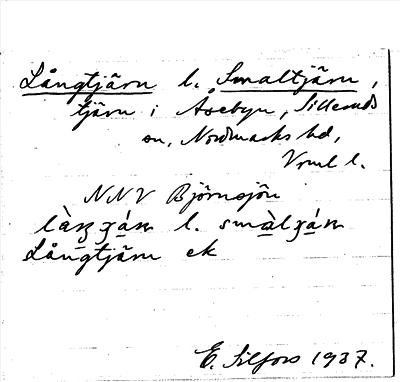 Långtjärn l. Smaltjärn,
tjärn i Åsebyn, Silleruds
sn, Nordmarks hd,
Vrml l.
NNV Björnsjön
l. smàlʒán
Långtjärn ek
E. Silfors 1937.